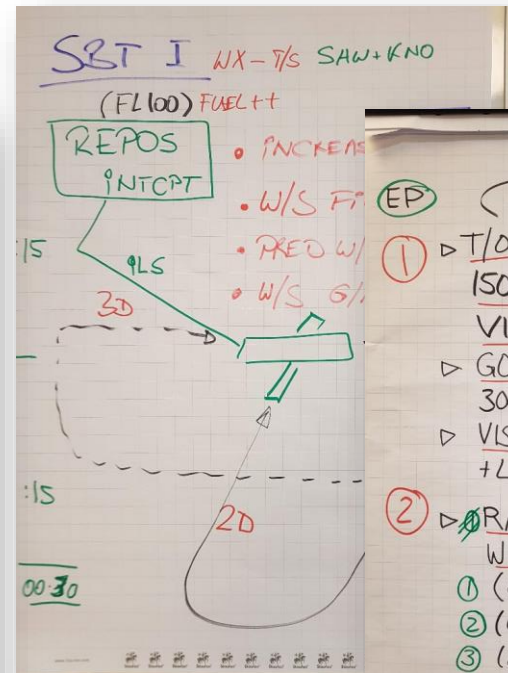 SBT I WX-T/S SAW+KNO
(FL100) FUEL++
REPOS
INTCPT
• INCREAS
• W/S
• PRED W/
• W/S G/
:15
ILS
3D
:15
2D
00:30
EP
① ▷ T/O
150
VI
▷ GO
30
▷ VIS
+L
② ▷ R/
W
① (
② (
③ (